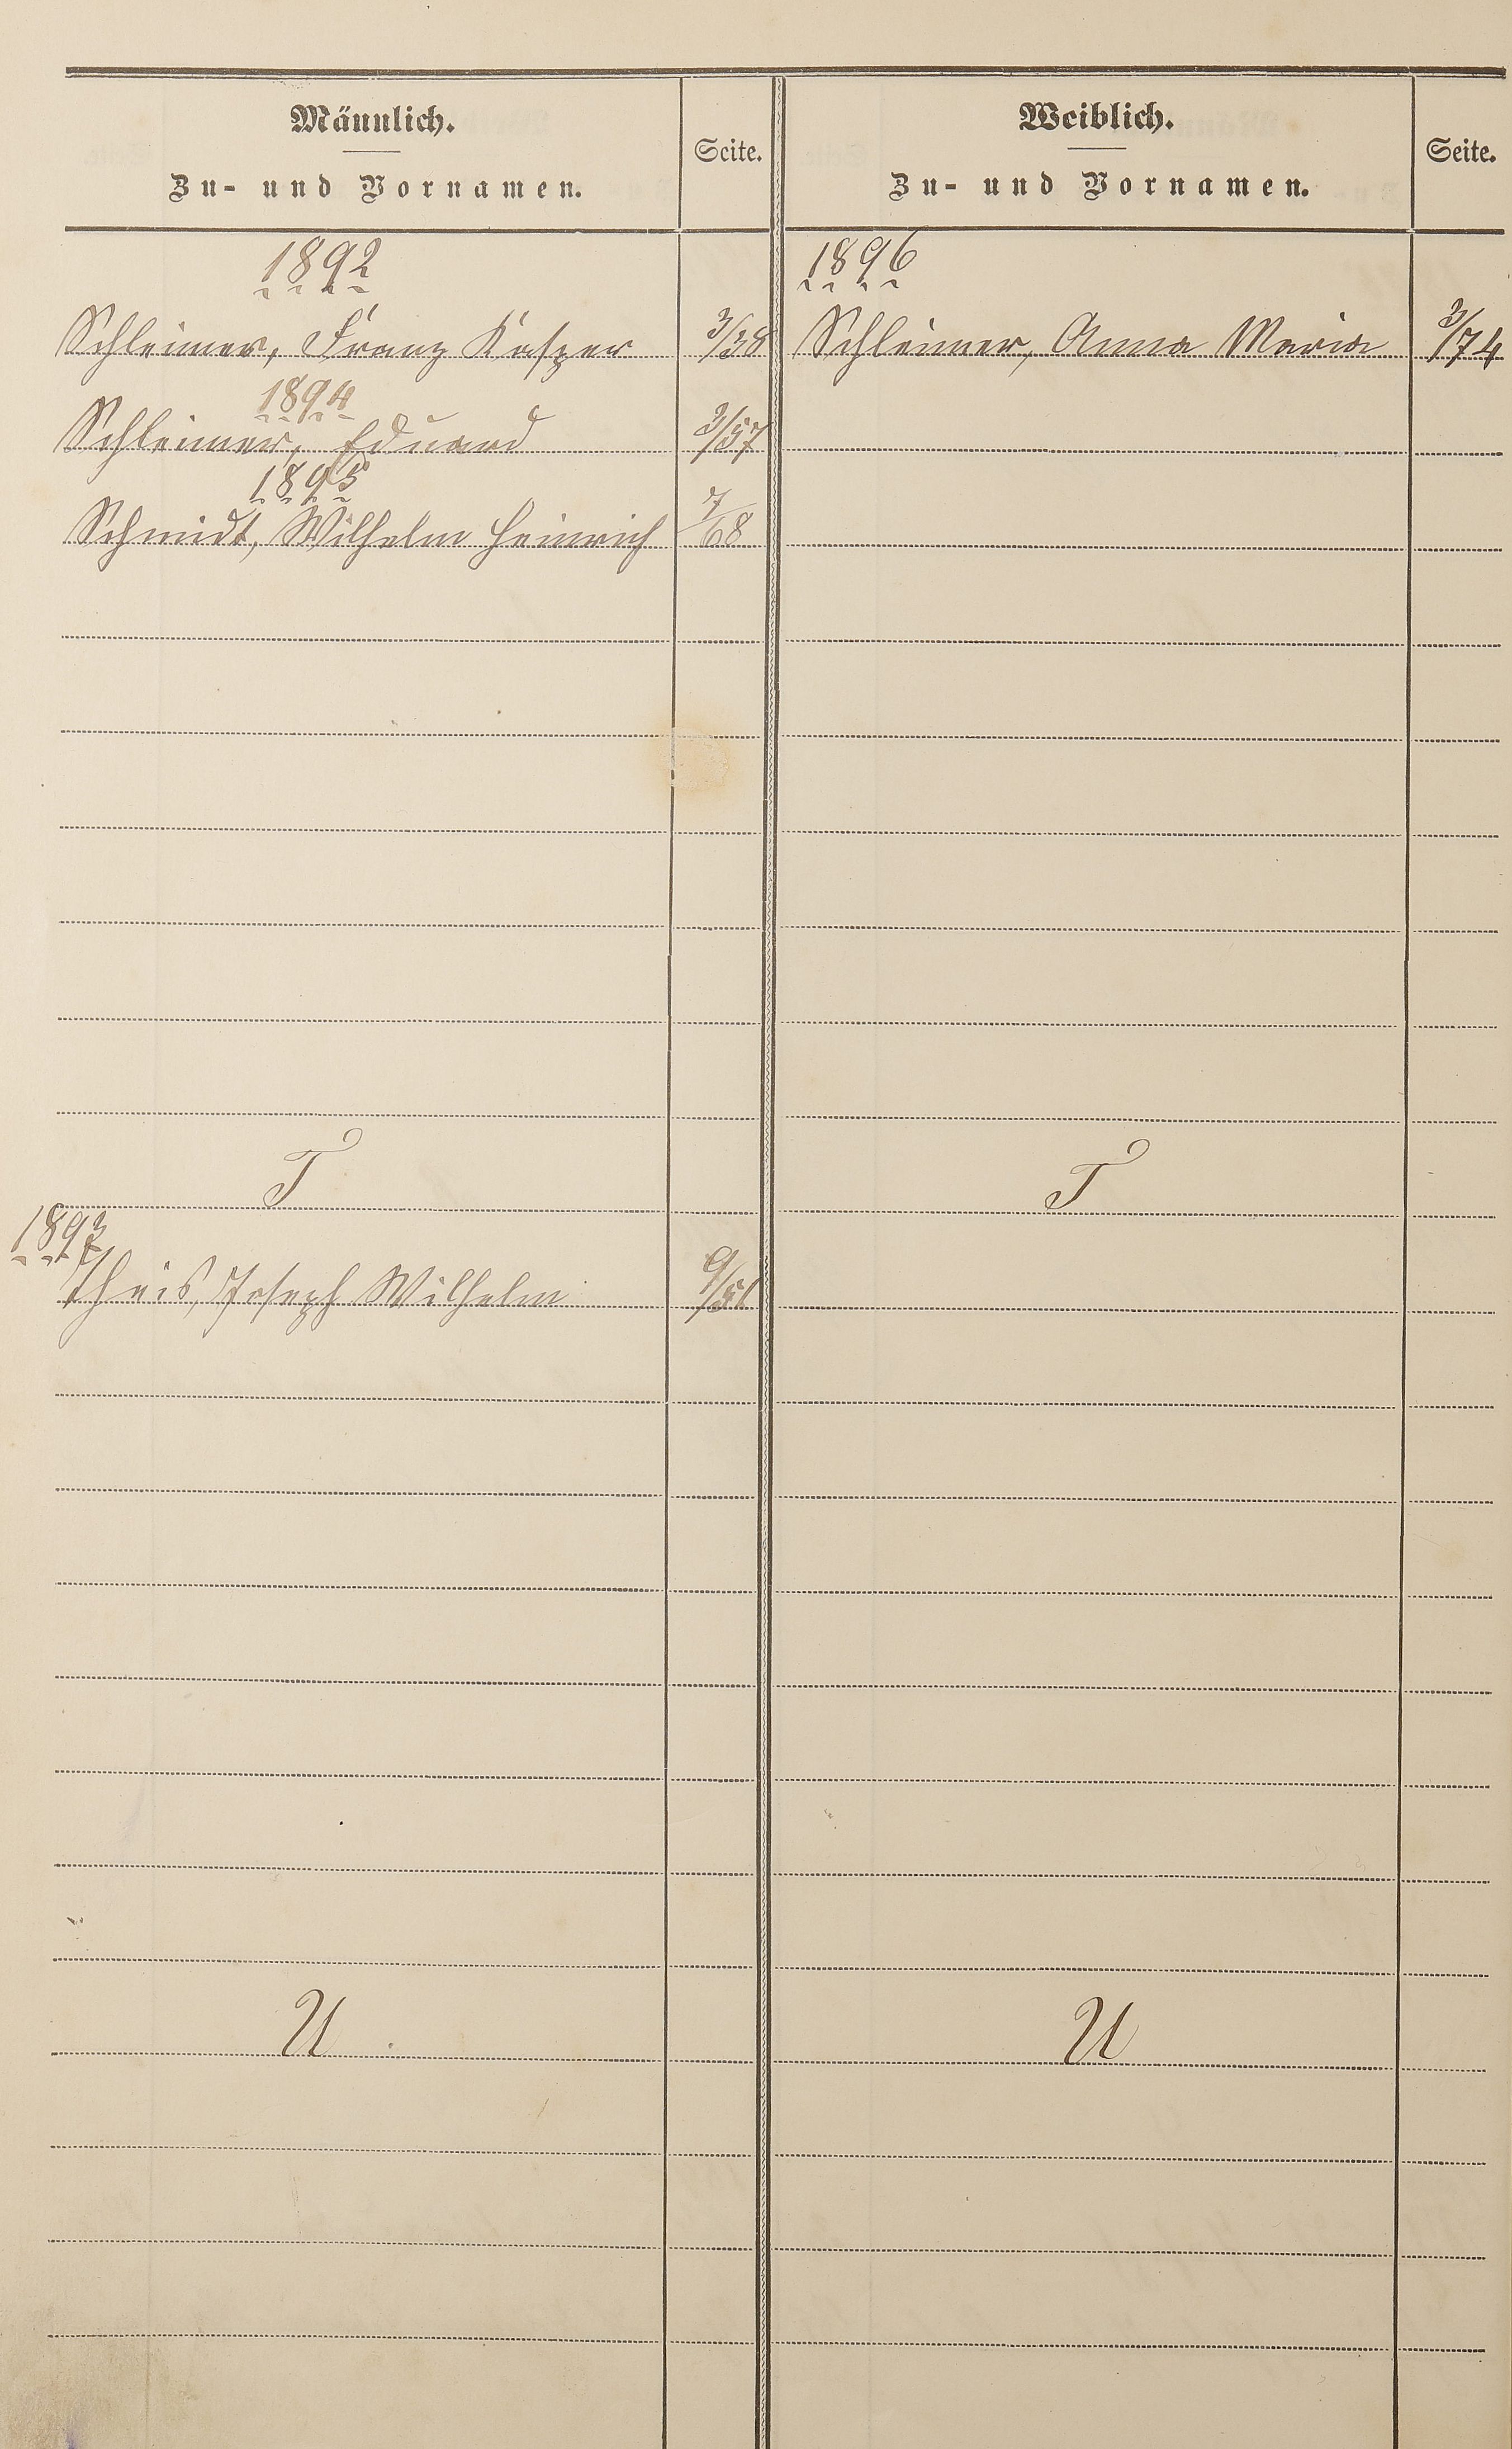 Männlich.
Zu- und Vornamen.
Seite.
1892
Schleimer, Franz Kasper 3/38
1894
Schleimer, Eduard 3/57
1895
Schmidt, Wilhelm Heinrich 7/68
T
1893
Theis, Joseph Wilhelm 9/51
U
Weiblich.
Zu- und Vornamen.
Seite.
1896
Schleimer, Anna Maria 3/74
T
U